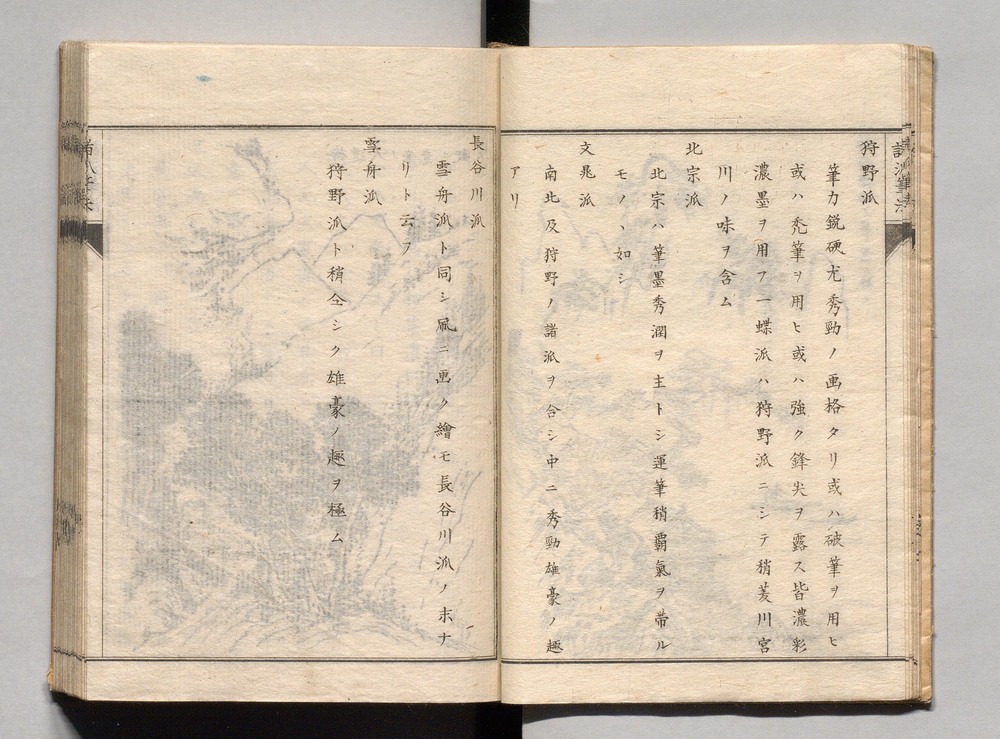 狩野派
筆力鋭硬尤秀勁ノ画格タリ或ハ破筆ヲ用ヒ
或ハ禿筆ヲ用ヒ或ハ強ク鋒尖ヲ露ス皆濃彩
濃墨ヲ用フ一蝶派ハ狩野派ニシテ稍菱川宮
川ノ味ヲ含ム
北宗派
北宗ハ筆墨秀潤ヲ主トシ運筆稍覇氣ヲ帯ル
モノヽ如シ
文晁派
南北及狩野ノ諸派ヲ合シ中ニ秀勁雄豪ノ趣
アリ
長谷川派
雪舟派ト同シ風ニ画ク繪モ長谷川派ノ末ナ
リト云フ
雪舟派
狩野派ト稍仝シク雄豪ノ趣ヲ極ム